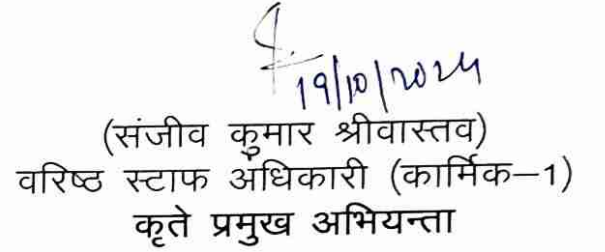 19/10/2024
(संजीव कुमार श्रीवास्तव)
वरिष्ठ स्टाफ अधिकारी (कार्मिक–1)
कृते प्रमुख अभियन्ता